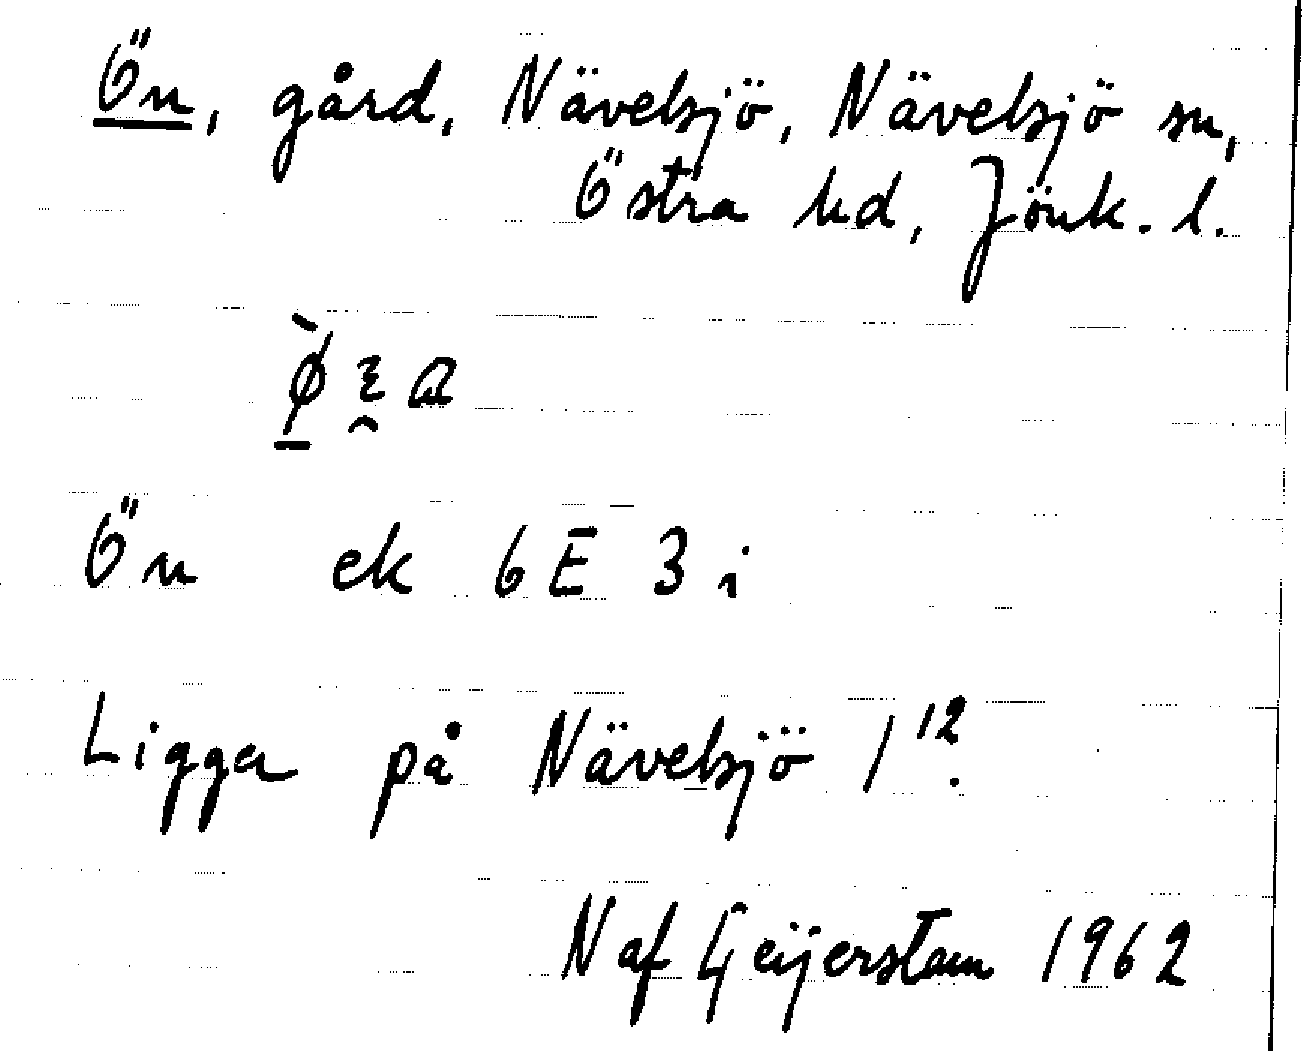 Ön, gård, Nävelsjö, Nävelsjö sn,
Östra hd, Jönk. l.
Ön ek 6E 3i
Ligger på Nävelsjö 1¹².
N af Geijerstam 1962